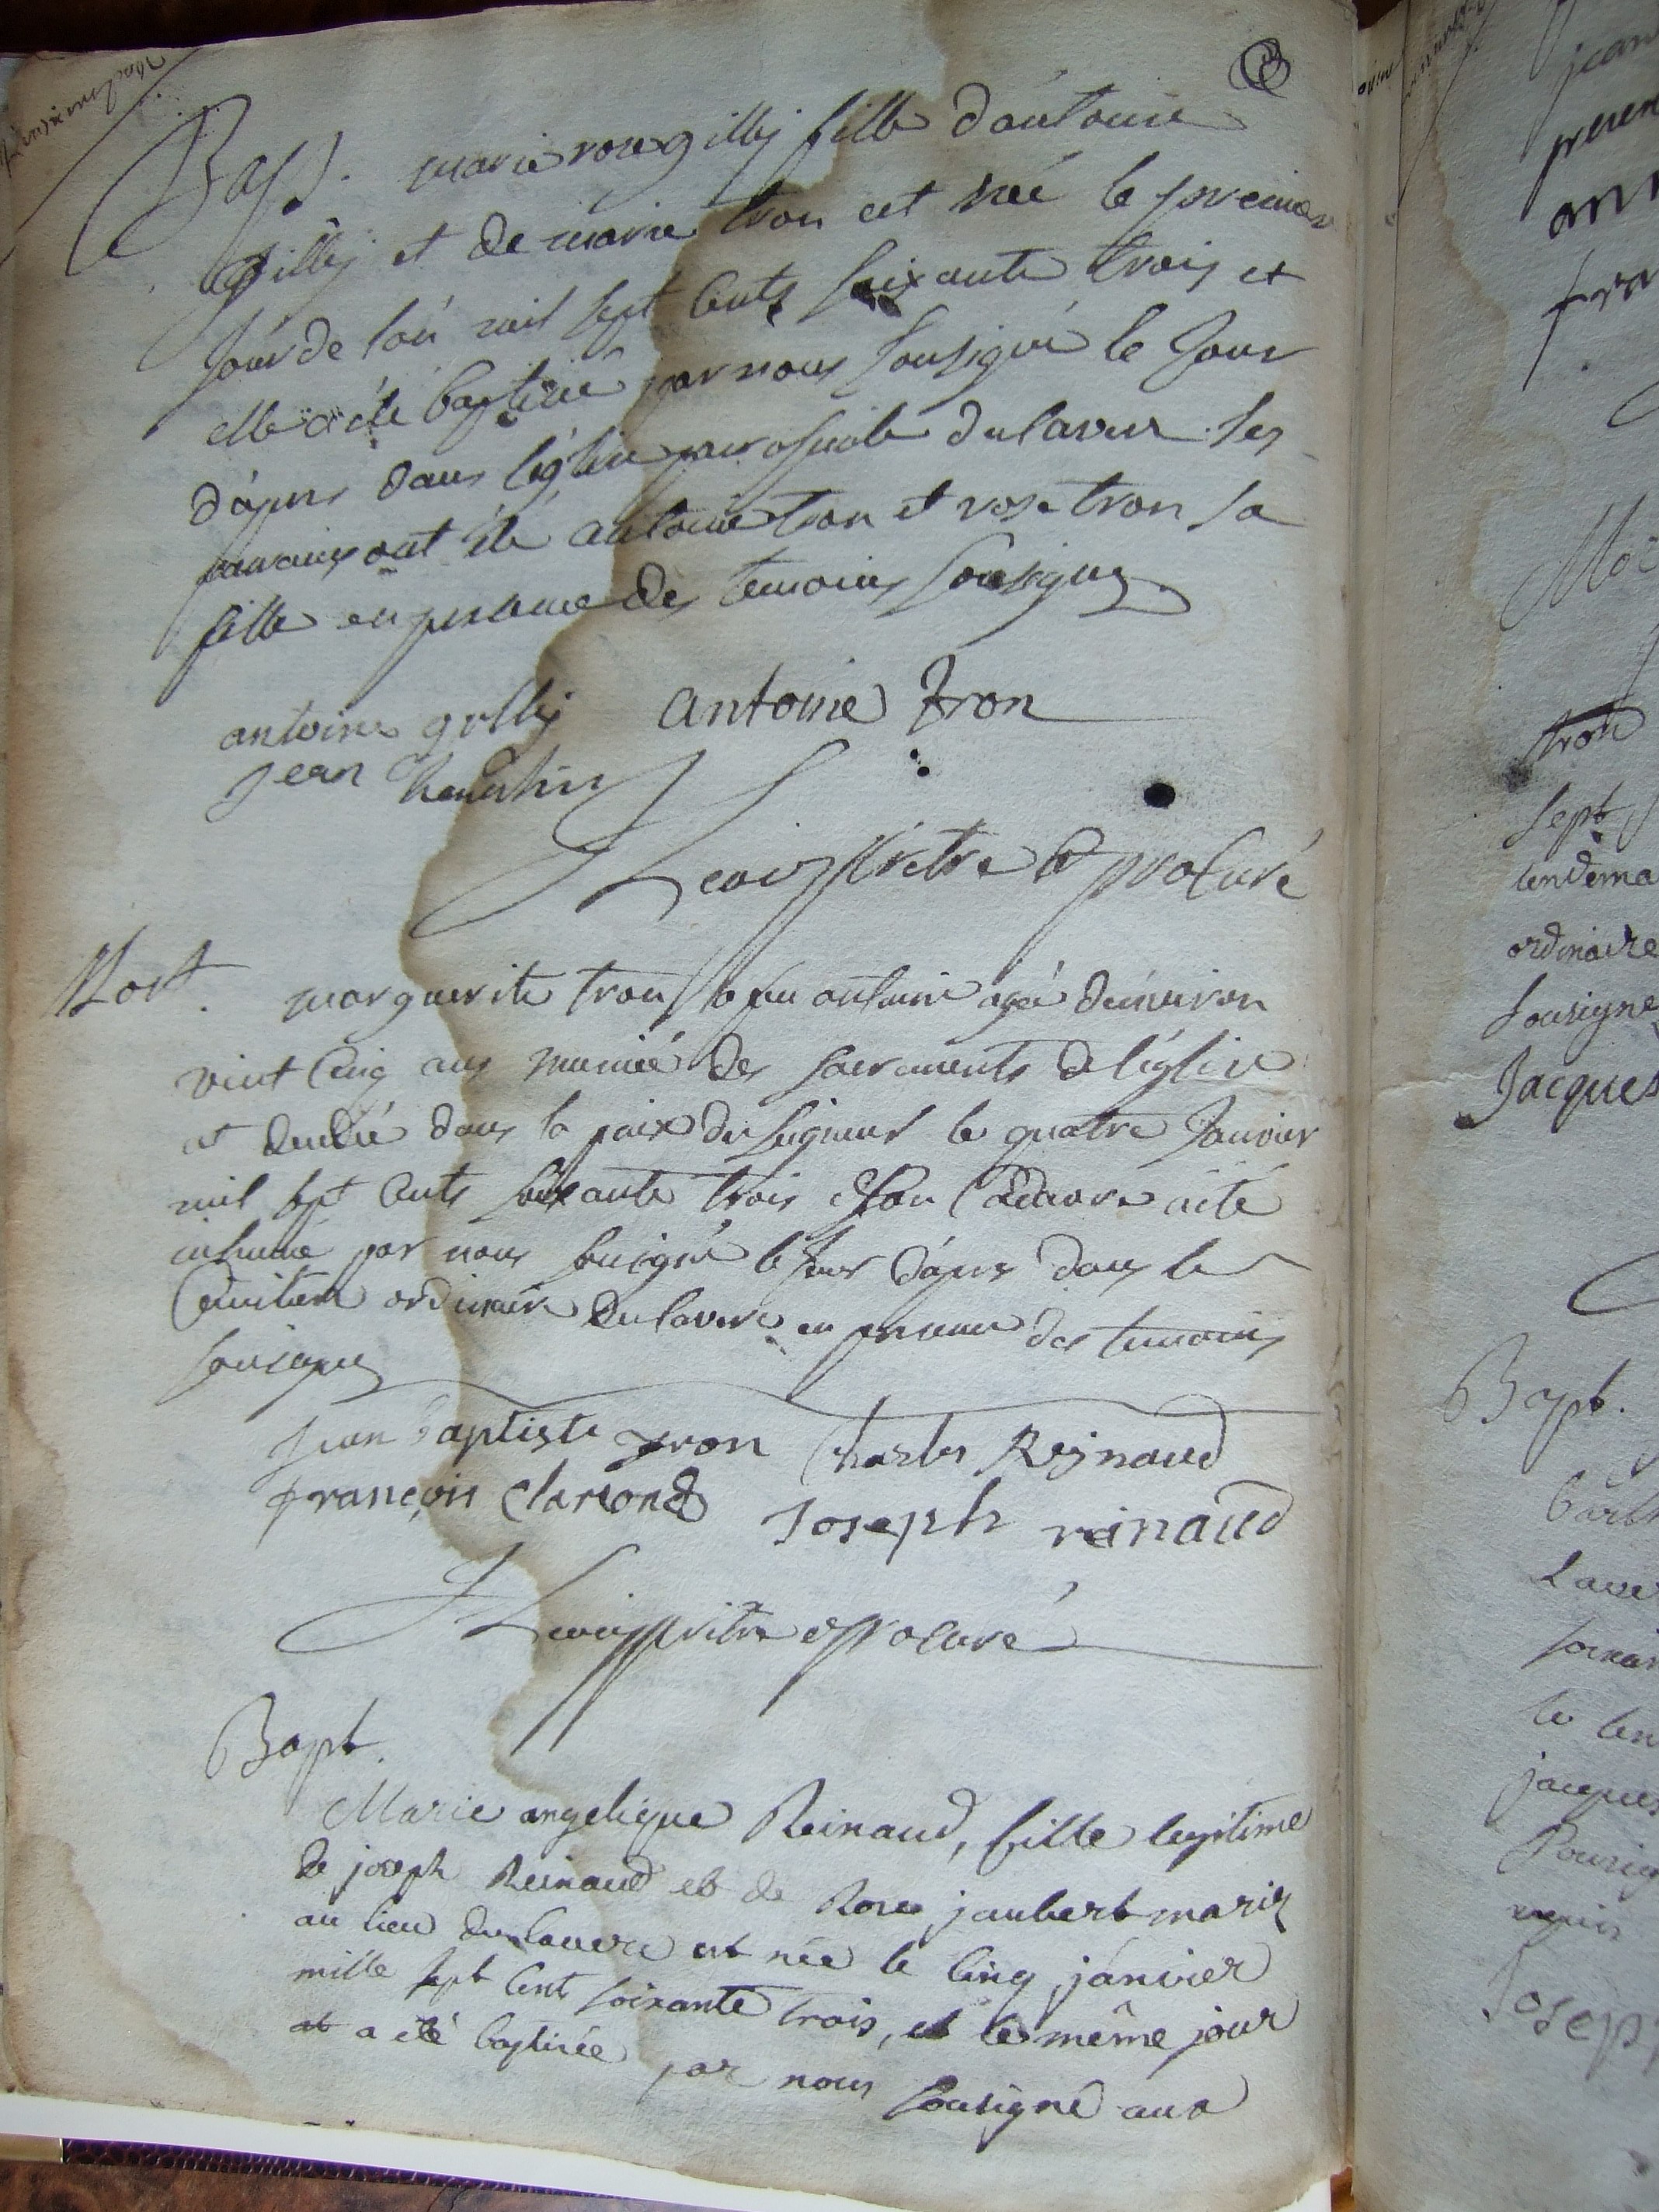 Bapt. marie rose gilly fille d'antoine
gilly et de marie tron est née le premier
jour de l'an mil sept cents soixante trois et
elle a été baptisée par nous sousigné le jour
d'apres dans l'église paroissiale du laver ses
parrains ont été antoine tron et rose tron sa
fille en presence des temoins sousignes
antoine gilly antoine tron
jean
pretre et procuré
Mort. marguerite tron a feu antoine agée d'environ
vint cinq ans munie des sacrements de l'église
est decedée dans la paix du seigneur le quatre janvier
mil sept cents soixante trois et son cadavre a été
inhumé par nous sousigné le jour d'apres dans le
cimitiere ordinaire du lavere en presence des temoins
sousignes
jean baptiste tron charles Reynaud
françois clariond joseph reinaud
pretre et procuré
Bapt.
Marie angelique Reinaud, fille legitime
de joseph Reinaud et de Rose jaubert mariés
au lieu du lavere est née le cinq janvier
mille sept cent soixante trois, et le même jour
a été baptisée par nous sousigné aux
jean
presen
ann
fra
tron
sept
lendema
ordinaire
sousigne
Jacques
Bapt.
Laver
le len
jacques
Josep